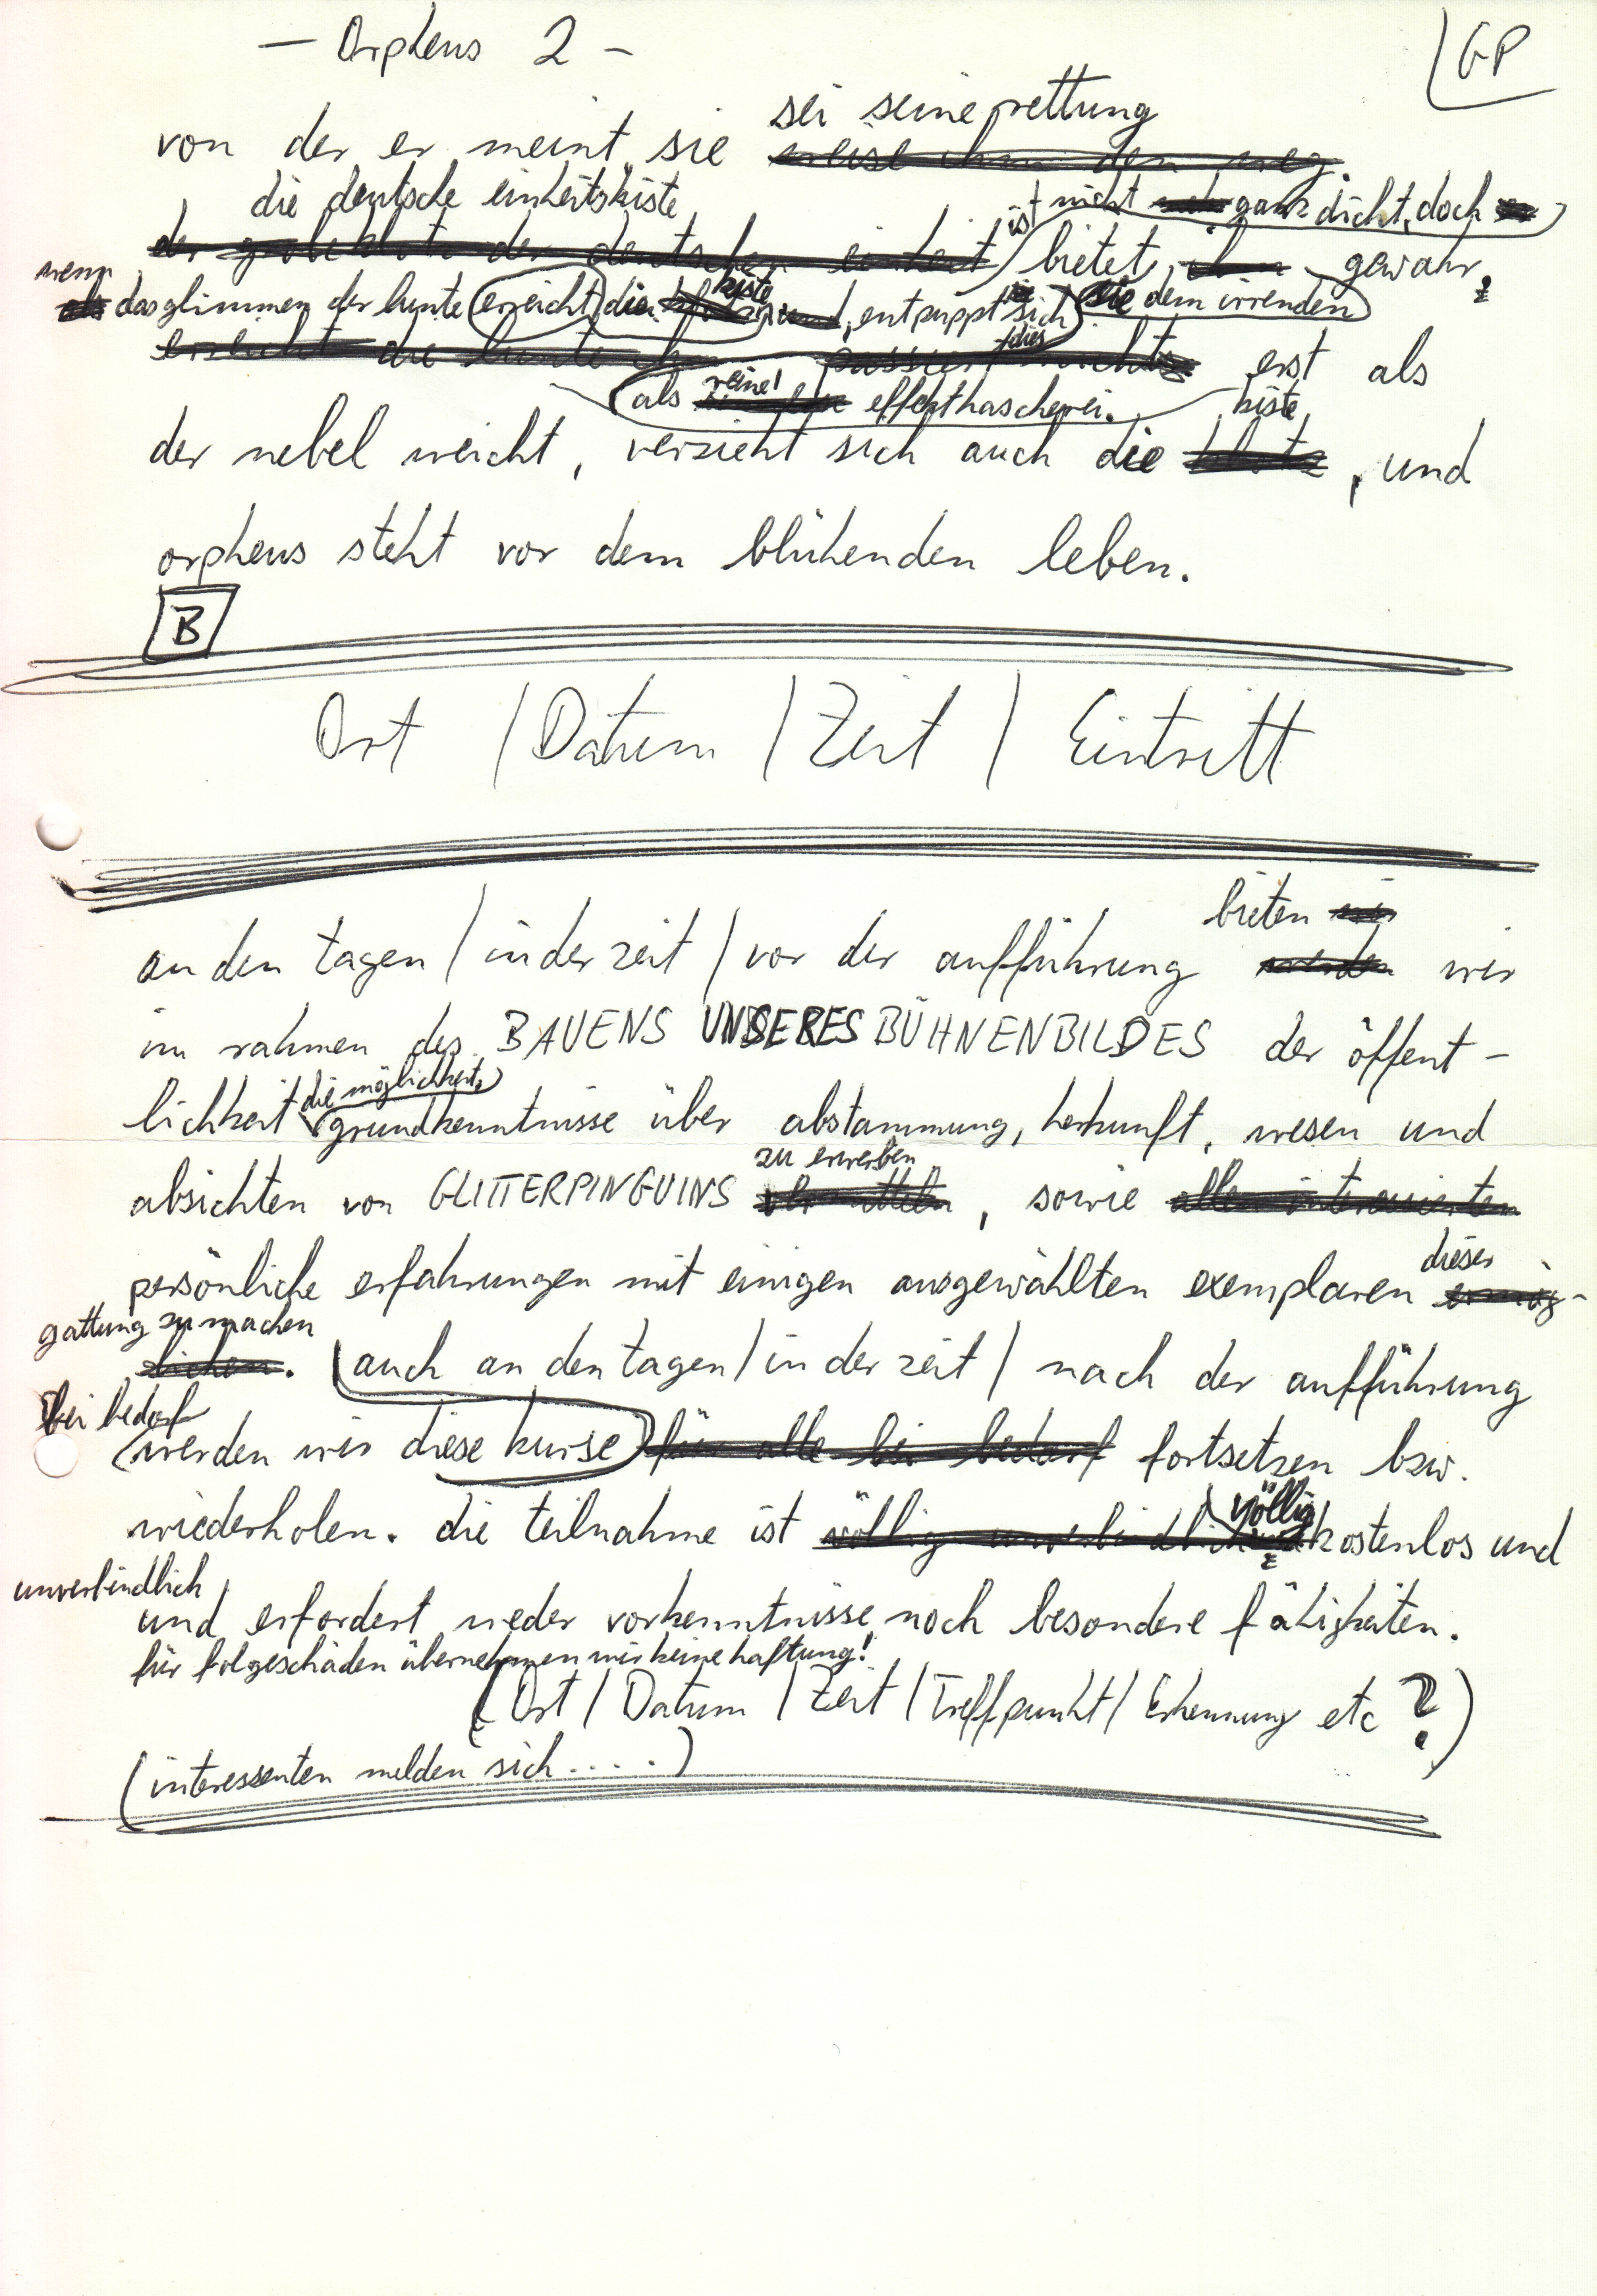 — Orpheus 2 –
GP
sei seine rettung
von der er meint sie weise ihm den weg.
die deutsche einheitskiste ist nicht ganz dicht, doch
der grobe klotz der deutschen einheit bietet, ihm gewähr
wenn kiste
als das glimmen der lunte erreicht die, entpuppt sich sie dem irrenden
erreicht die lunte passiert nichts dies erst als
als reine effekthascherei. kiste
der nebel weicht, verzieht sich auch die klotz, und
orpheus steht vor dem blühenden leben.
B
Ort / Datum / Zeit / Eintritt
bieten wir
an den tagen / in der zeit / vor der aufführung werden wir
im rahmen des BAUENS UNSERES BÜHNENBILDES der öffent-
die möglichkeit,
lichkeit grundkenntnisse über abstammung, herkunft, wesen und
zu erwerben
absichten von GLITTERPINGUINS vermitteln, sowie allen interessierten
dieser
persönliche erfahrungen mit einigen ausgewählten exemplaren ermög-
gattung zu machen
lichen. auch an den tagen / in der zeit / nach der aufführung
bei bedarf
werden wir diese kurse für alle bei bedarf fortsetzen bzw.
völlig
wiederholen. die teilnahme ist völlig unverbindlich kostenlos und
unverbindlich
und erfordert weder vorkenntnisse noch besondere fähigkeiten.
für folgeschäden übernehmen wir keine haftung!
(Ort / Datum / Zeit / Treffpunkt / Erkennung etc ?)
(interessenten melden sich . . . . .)